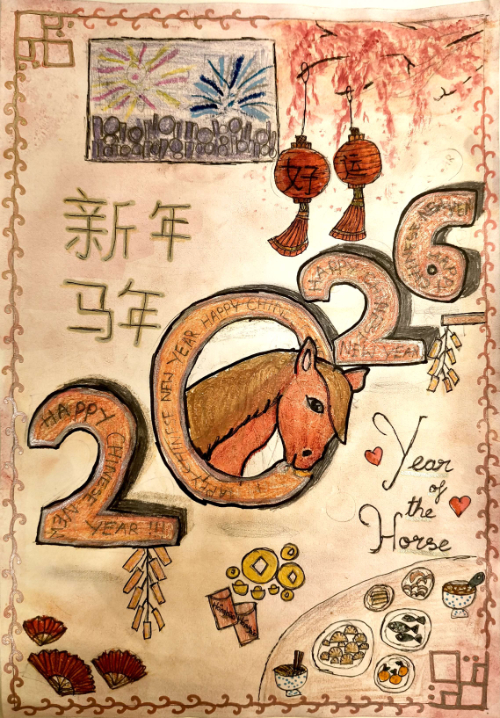 好运
新年
马年
2026
HAPPY CHINESE NEW YEAR !!!
CHINESE NEW YEAR HAPPY CHINE
HAPPY
NEW YEAR
CHINESE
Year
of
the
Horse